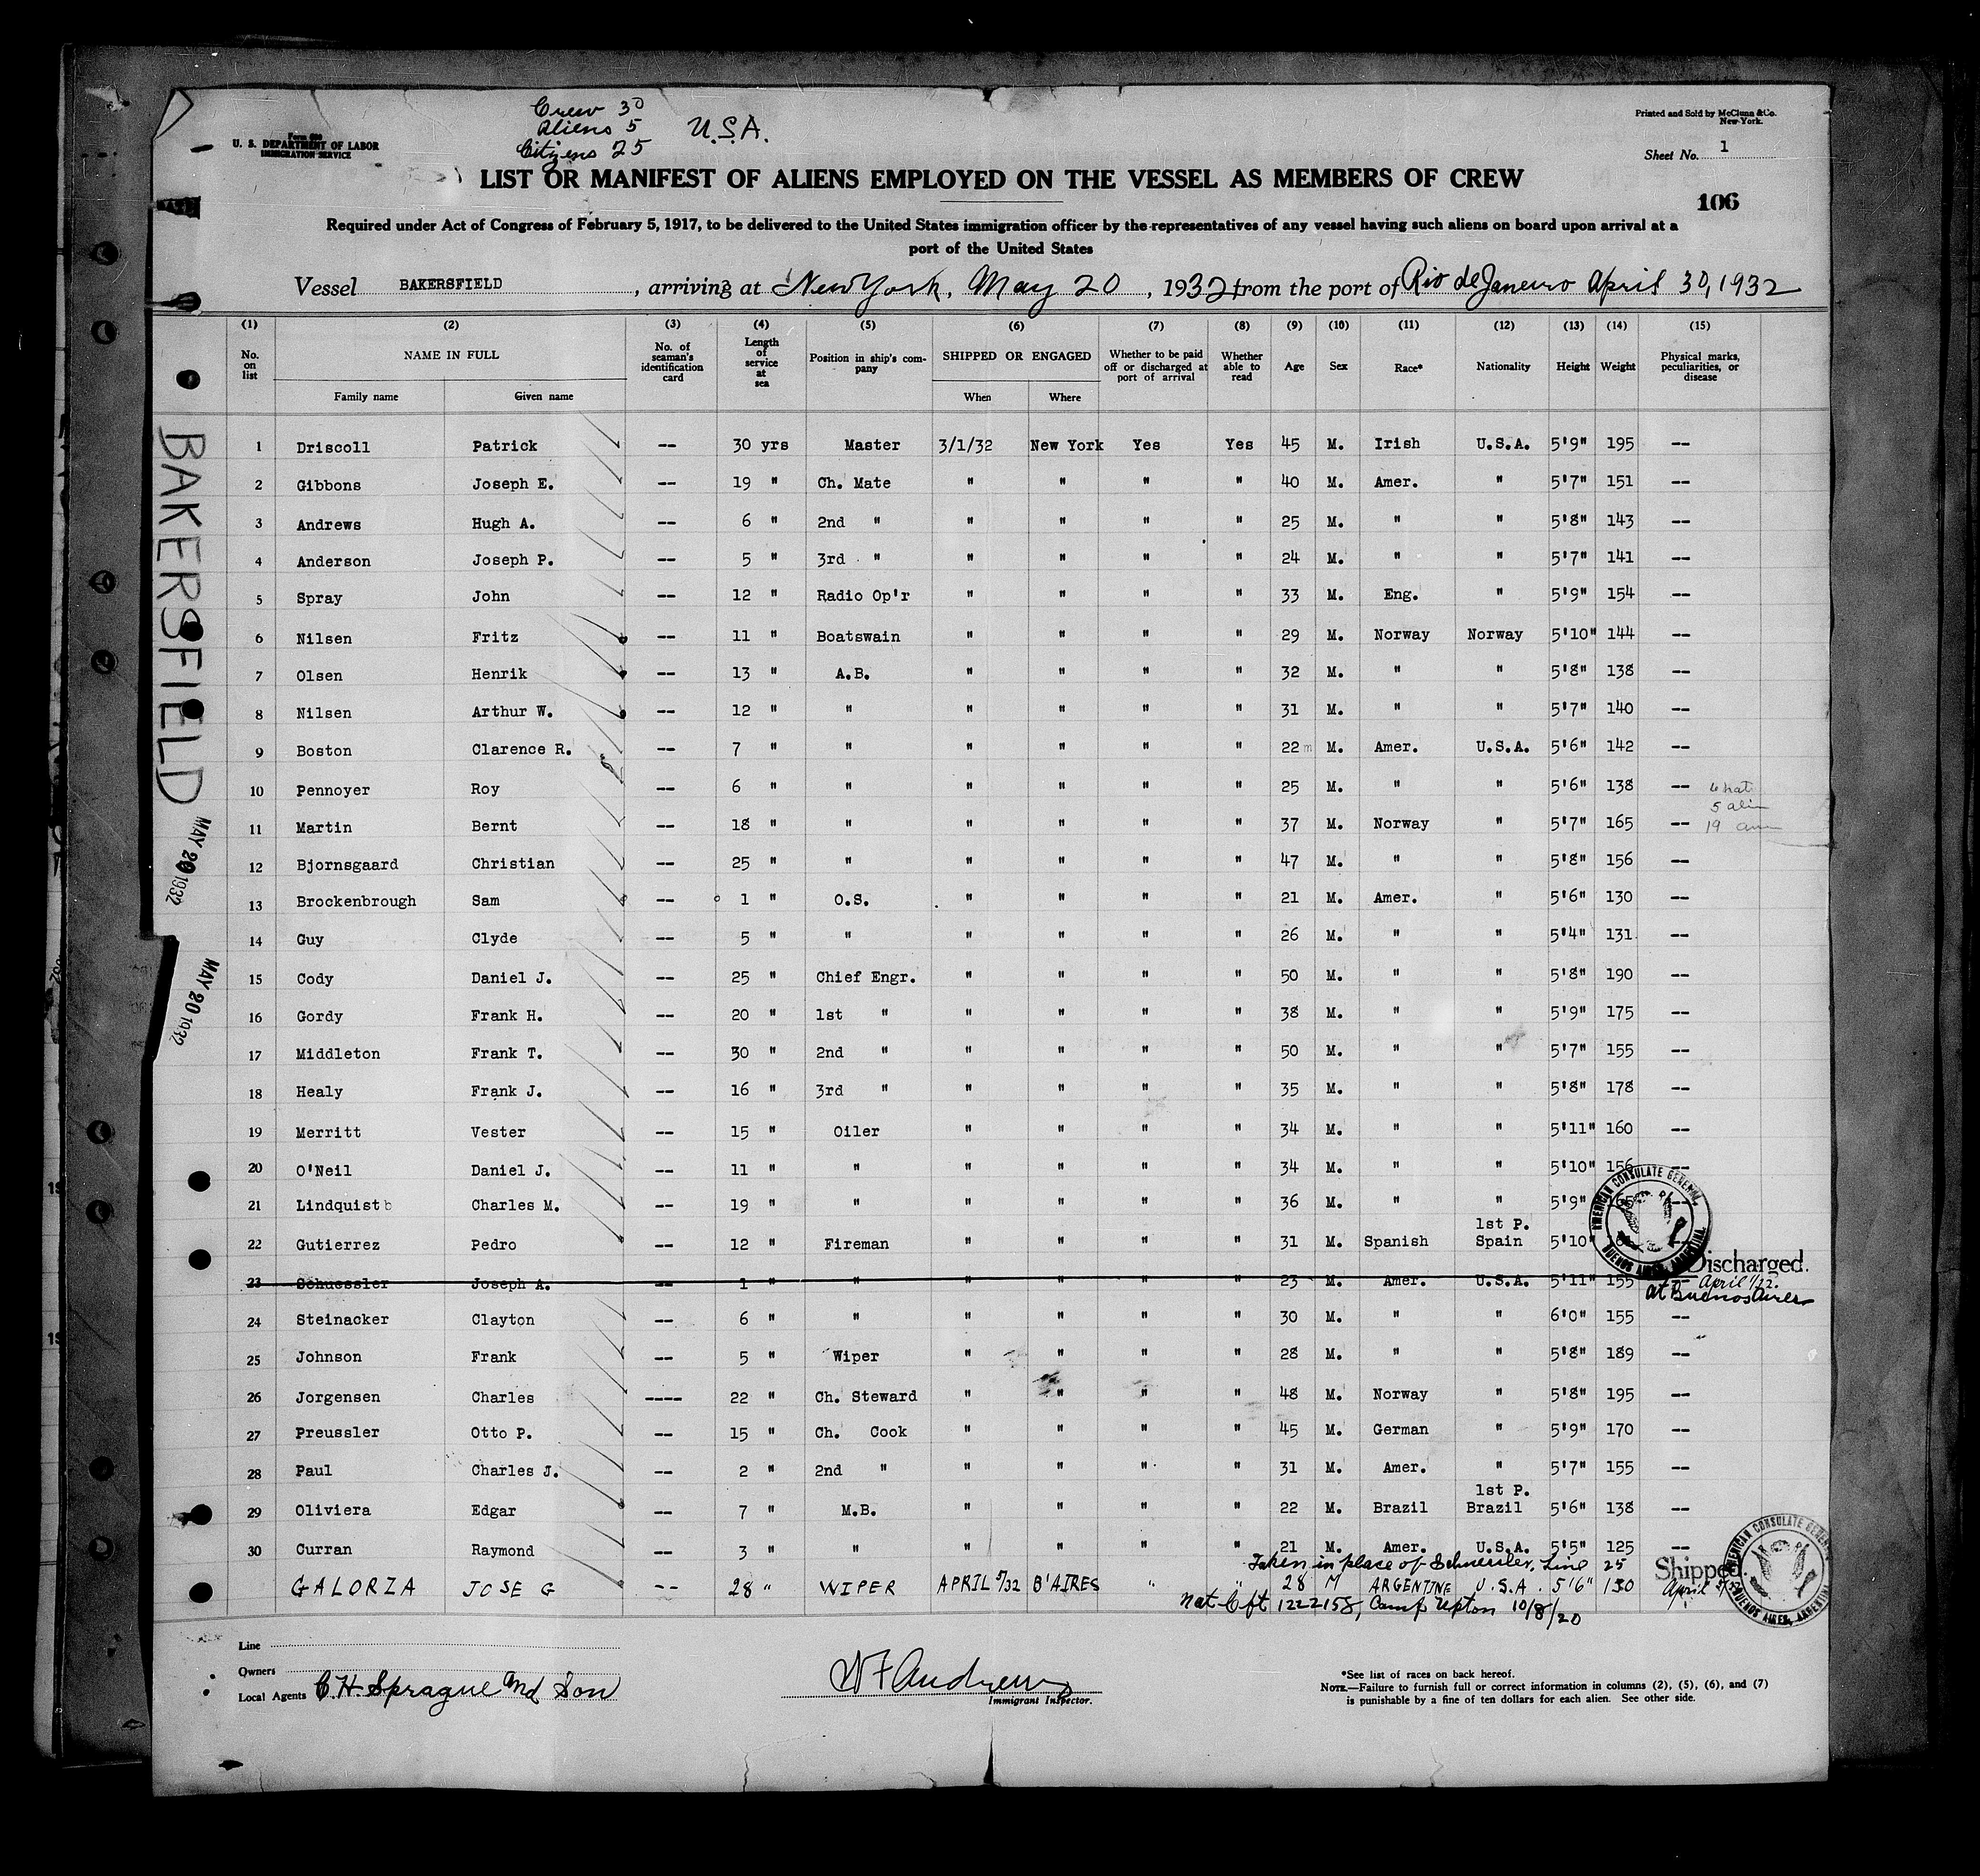 Crew 30
Aliens 5
Citizens 25
U.S.A.
Printed and Sold by McClunn & Co.
New York.
U. S. DEPARTMENT OF LABOR
IMMIGRATION SERVICE
Sheet No. 1
LIST OR MANIFEST OF ALIENS EMPLOYED ON THE VESSEL AS MEMBERS OF CREW
106
Required under Act of Congress of February 5, 1917, to be delivered to the United States immigration officer by the representatives of any vessel having such aliens on board upon arrival at a
port of the United States
Vessel BAKERSFIELD, arriving at New York, May 20, 1932, from the port of Rio de Janeiro April 30, 1932
(1) (2) (3) (4) (5) (6) (7) (8) (9) (10) (11) (12) (13) (14) (15)
No. on list NAME IN FULL No. of seaman's identification card Length of service at sea Position in ship's company SHIPPED OR ENGAGED Whether to be paid off or discharged at port of arrival Whether able to read Age Sex Race* Nationality Height Weight Physical marks, peculiarities, or disease
Family name Given name When Where
1 Driscoll Patrick -- 30 yrs Master 3/1/32 New York Yes Yes 45 M. Irish U.S.A. 5'9" 195 --
2 Gibbons Joseph E. -- 19 " Ch. Mate " " " " 40 M. Amer. " 5'7" 151 --
3 Andrews Hugh A. -- 6 " 2nd " " " " " 25 M. " " 5'8" 143 --
4 Anderson Joseph P. -- 5 " 3rd " " " " " 24 M. " " 5'7" 141 --
5 Spray John -- 12 " Radio Op'r " " " " 33 M. Eng. " 5'9" 154 --
6 Nilsen Fritz -- 11 " Boatswain " " " " 29 M. Norway Norway 5'10" 144 --
7 Olsen Henrik -- 13 " A.B. " " " " 32 M. " " 5'8" 138 --
8 Nilsen Arthur W. -- 12 " " " " " " 31 M. " " 5'7" 140 --
9 Boston Clarence R. -- 7 " " " " " " 22 M. Amer. U.S.A. 5'6" 142 --
10 Pennoyer Roy -- 6 " " " " " " 25 M. " " 5'6" 138 --
5 alin
11 Martin Bernt -- 18 " " " " " " 37 M. Norway " 5'7" 165 -- 19 am
12 Bjornsgaard Christian -- 25 " " " " " " 47 M. " " 5'8" 156 --
13 Brockenbrough Sam -- 1 " O.S. " " " " 21 M. Amer. " 5'6" 130 --
14 Guy Clyde -- 5 " " " " " " 26 M. " " 5'4" 131 --
15 Cody Daniel J. -- 25 " Chief Engr. " " " " 50 M. " " 5'8" 190 --
16 Gordy Frank H. -- 20 " 1st " " " " " 38 M. " " 5'9" 175 --
17 Middleton Frank T. -- 30 " 2nd " " " " " 50 M. " " 5'7" 155 --
18 Healy Frank J. -- 16 " 3rd " " " " " 35 M. " " 5'8" 178 --
19 Merritt Vester -- 15 " Oiler " " " " 34 M. " " 5'11" 160 --
20 O'Neil Daniel J. -- 11 " " " " " " 34 M. " " 5'10" 156 --
21 Lindquist Charles M. -- 19 " " " " " " 36 M. " " 5'9" --
1st P.
22 Gutierrez Pedro -- 12 " Fireman " " " " 31 M. Spanish Spain 5'10"
AMERICAN CONSULATE GENERAL
BUENOS AIRES, ARGENTINA
Discharged.
23 Schuessler Joseph A. -- 1 " " " " " " 23 M. Amer. U.S.A. 5'11" 155 --
at Buenos Aires
24 Steinacker Clayton -- 6 " " " " " " 30 M. " " 6'0" 155 --
25 Johnson Frank -- 5 " Wiper " " " " 28 M. " " 5'8" 189 --
26 Jorgensen Charles ---- 22 " Ch. Steward " " " " 48 M. Norway " 5'8" 195 --
27 Preussler Otto P. -- 15 " Ch. Cook " " " " 45 M. German " 5'9" 170 --
28 Paul Charles J. -- 2 " 2nd " " " " " 31 M. Amer. " 5'7" 155 --
1st P.
29 Oliviera Edgar -- 7 " M.B. " " " " 22 M. Brazil Brazil 5'6" 138 --
30 Curran Raymond -- 3 " " " " " " 21 M. Amer. U.S.A. 5'5" 125 --
Taken in place of Schuessler, Line 25
GALORZA JOSE G -- 28 " WIPER APRIL 5/32 B'AIRES " " 28 M ARGENTINE U.S.A. 5'6" 130
Nat Cft 1222158, Camp Upton 10/8/20
Shipped.
April
AMERICAN CONSULATE GENERAL
BUENOS AIRES, ARGENTINA
BAKERSFIELD
MAY 20 1932
MAY 20 1932
Line
Owners
Local Agents C. H. Sprague and Son
Immigrant Inspector.
*See list of races on back hereof.
NOTE.—Failure to furnish full or correct information in columns (2), (5), (6), and (7)
is punishable by a fine of ten dollars for each alien. See other side.